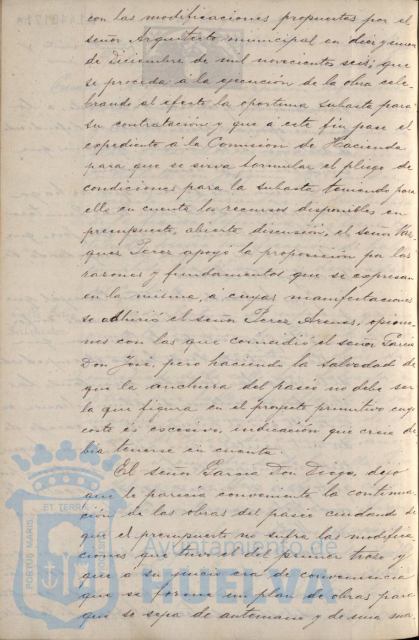 con las modificaciones propuestas por el
señor Arquitecto municipal en diez y nueve
de diciembre de mil novecientos seis; que
se proceda á la ejecución de la obra cele-
brando al efecto la oportuna subasta para
su contratación y que á este fin pase el
expediente á la Comisión de Hacienda
para que se sirva formular el pliego de
condiciones para la subasta teniendo para
ello en cuenta los recursos disponibles en
presupuesto, abierta discusión, el señor
quez Perez apoyó la proposición por las
razones y fundamentos que se expresan
en la misma, á cuyas manifestaciones
se adhirió el señor Perez Arenas, opinio-
nes con las que coincidió el señor García
Don José, pero haciendo la salvedad de
que la anchura del paseo no debe ser
la que figura en el proyecto primitivo cuyo
coste es excesivo, indicación que cree de-
bía tenerse en cuenta.
El señor García Don Diego, dijo
que le parecía conveniente la continua-
ción de las obras del paseo cuidando de
que el presupuesto no sufra las modifica-
ciones que tuvo el del primer trozo y
que á su juicio era de conveniencia
que se forme un plan de obras para
que se sepa de antemano y de una ma-
PORTUS MARIS
ET TERRÆ
Ayuntamiento de
HUELVA